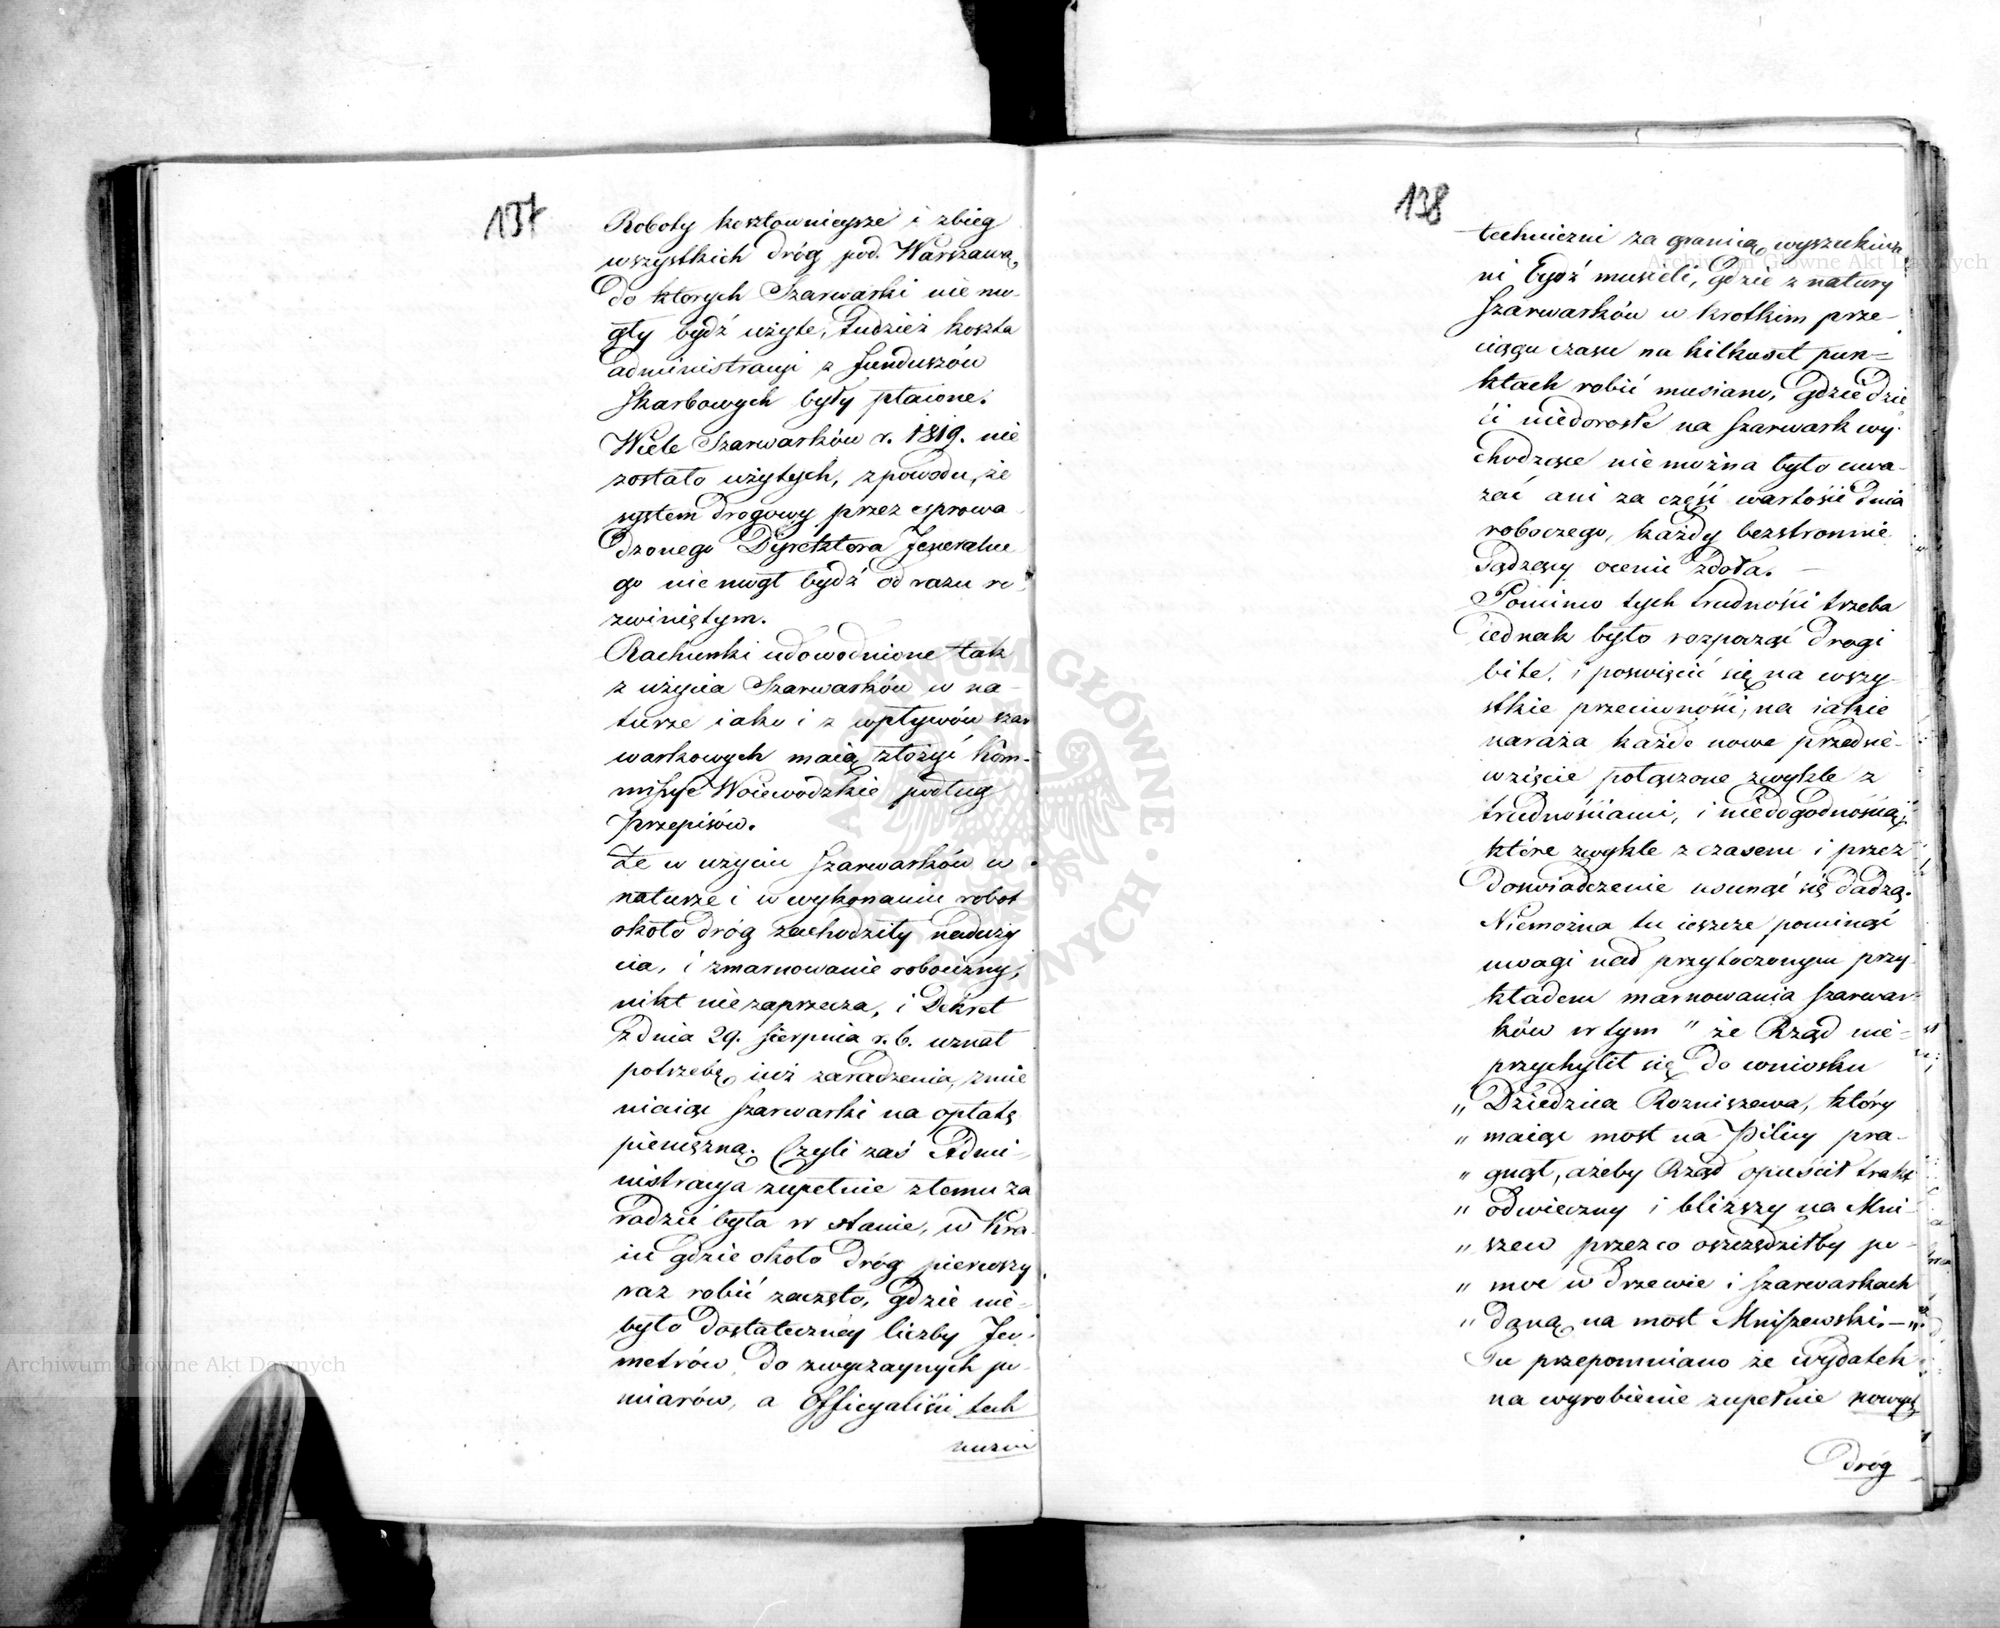 137
Roboty kosztownieysze i zbieg
wszystkich dróg pod Warszawą,
do ktorych Szarwarki nie mo-
gły bydź użyte, tudzież koszta
administracyi z funduszów
Skarbowych były płacone.
Wiele Szarwarków r. 1819. nie
zostało użytych, z powodu, że
system drogowy przez sprowa-
dzonego Dyrektora Jeneralne-
go nie mógł bydź od razu ro-
zwiniętym.
Rachunki udowodnione tak
z użycia Szarwarków w na-
turze iako i z wpływów szar-
warkowych maią złożyć Kom-
missye Woiewodzkie podług
przepisów.
Że w użyciu Szarwarków w
naturze i w wykonaniu robot
około dróg zachodziły naduży
cia, i zmarnowanie robocizny,
nikt nie zaprzecza, i Dekret
z dnia 29. Sierpnia r. b. uznał
potrzebę iuż zaradzenia, zmie
niaiąc Szarwarki na opłatę
pieniężną. Czyli zaś Admi-
nistracya zupełnie złemu za
radzić była w stanie, w Kra-
iu gdzie około dróg pierwszy
raz robić zaczęto, gdzie nie-
było dostateczney liczby Jeo-
metrów do zwyczaynych po-
miarów, a Officyaliści tech
niczni
138
techniczni za granicą wyszukiwa
ni bydź musieli, gdzie z natury
Szarwarków w krotkim prze-
ciągu czasu na kilkuset pun-
ktach robić musiano, gdzie dzie
ci niedorosłe na Szarwark wy-
chodzące nie można było uwa-
żać ani za część wartości dnia
roboczego, każdy bezstronnie
sądzący ocenić zdoła.
Pomimo tych trudności trzeba
iednak było rozpocząć drogi
bite, i poświęcić się na wszy-
stkie przeciwności, na iakie
naraża każde nowe przedsię-
wzięcie połączone zwykle z
trudnościami, i niedogodnością,
które zwykle z czasem i przez
doświadczenie usunąć się dadzą.
Niemożna tu ieszcze pominąć
uwagi nad przytoczonym przy-
kładem marnowania Szarwar-
ków w tym " że Rząd nie-
przychylił się do wniosku
„ Dziedzica Rozniszewa, który
„ maiąc most na Pilicy pra-
„ gnął, ażeby Rząd opuścił trakt
„ odwieczny i bliższy na Mni-
„ szew przez co oszczędziłby po-
„ moc w drzewie i Szarwarkach
„ daną na most Mniszewski. — "
Tu przepomniano że wydatek
na wyrobienie zupełnie nowych
dróg
Archiwum Główne Akt Dawnych
Archiwum Główne Akt Dawnych
ARCHIWUM GŁÓWNE AKT DAWNYCH